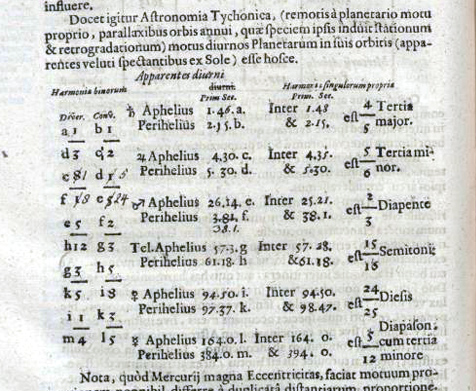 influere.
Docet igitur Astronomia Tychonica, (remotis à planetario motu
proprio, parallaxibus orbis annui, quæ speciem ipsis induit stationum
& retrogradationum) motus diurnos Planetarum in suis orbitis (appa-
rentes veluti spectantibus ex Sole) esse hosce.
Apparentes diurni
Harmoniæ binorum diurni. Harmoniæ singulorum propriæ
Prim. Sec. Prim. Sec.
Diver. Conv. ♄ Aphelius 1.46.a. Inter 1.48 est 4 Tertia
a 1 b 1 Perihelius 2.15.b. & 2.15. 5 major.
d 3 c 2 ♃ Aphelius 4.30.c. Inter 4.35. est 5 Tertia mi-
c 8 1 d Perihelius 5.30.d. & 5.30. 6 nor.
f e ♂ Aphelius 26.14.e. Inter 25.21. est 2 Diapente
e 5 f 2 Perihelius 3.81.f. & 38.1. 3
38.1.
h 12 g 3 Tel. Aphelius 57.3.g Inter 57.28. est 15 Semitoni
g 3 h 5 Perihelius 61.18.h & 61.18. 16
k 5 i 8 ♀ Aphelius 94.50.i. Inter 94.50. est 24 Diesis
i 1 k 3 Perihelius 97.37.k. & 98.47. 25
m 4 l 5 ☿ Aphelius 164.0.l. Inter 164.0. est 5 Diapason
Perihelius 384.0.m. & 394.0. 12 cum tertia
minore
Nota, quòd Mercurij magna Eccentricitas, faciat motuum pro-